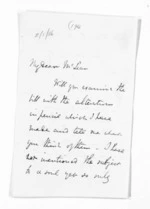 My dear McLean
Will you examine the
bill with the alterations
in pencil which I have
made and let me know
you think of them - I have
not mentioned the subject
to a soul yet so only